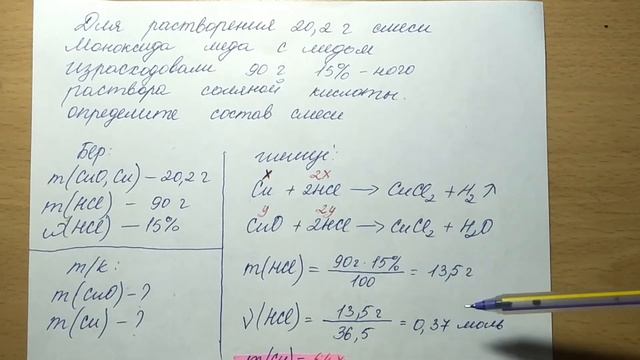 Для растворения 20,2 г смеси
Моноксида меда с медом
израсходовали 90 г 15%-ного
раствора соляной кислоты.
определите состав смеси
Бер:
m(CuO, Cu) – 20,2 г
m(HCl) – 90 г
ω(HCl) – 15%
т/к:
m(CuO) – ?
m(Cu) – ?
шешуі:
x 2x
Cu + 2HCl → CuCl₂ + H₂↑
y 2y
CuO + 2HCl → CuCl₂ + H₂O
m(HCl) = 90г · 15% / 100 = 13,5 г
ν(HCl) = 13,5 г / 36,5 = 0,37 моль
m(Cu) = 64x